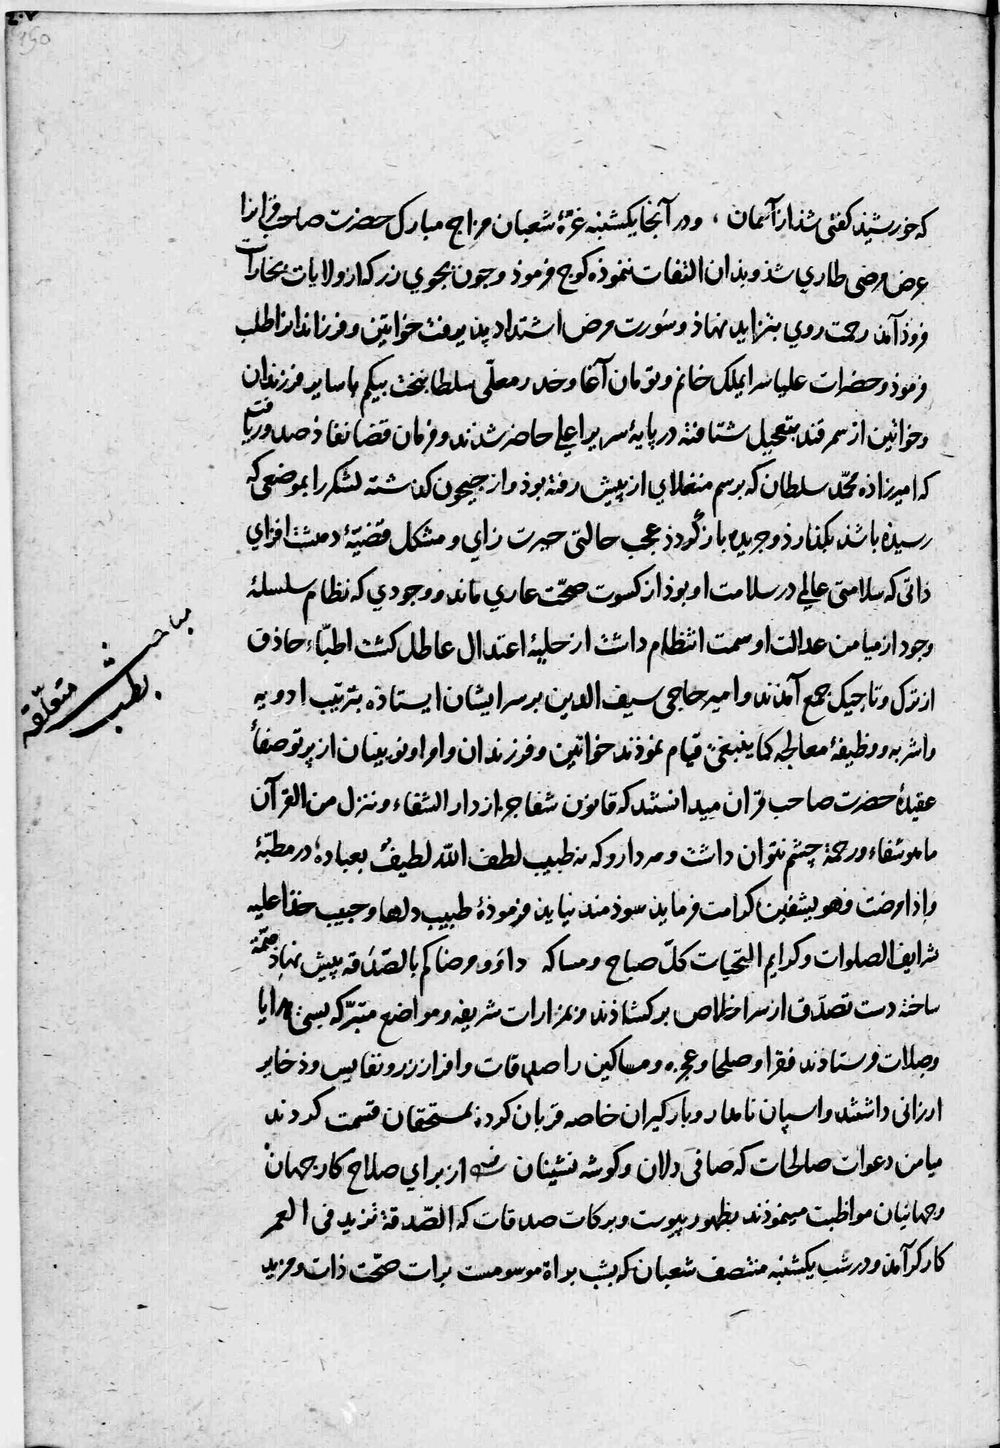 ۲۰۷
150
که خورشید کفتی شد از آسمان ، و در آنجا یکشنبه غرّهٔ شعبان مزاج مبارک حضرت صاحب قرانرا
عرض مرضی طاری شذ و بدان التفات ننموذه کوچ فرموذ و چون بجوی زر که از ولایات بخاراست
فروذ آمد رحمت روی بتزاید نهاذ و سورت مرض اشتداد پذیرفت خواتین و فرزندانرا طلب
فرموذ و حضرات علیا سرایملک خانم و تومان آغا و خدر معلّی سلطان بخت بیکم با سایر فرزندان
و خواتین از سمرقند بتعجیل شتافته در پایهٔ سریر اعلی حاضر شدند و فرمان قضا نفاذ صدور یافت
که امیرزاده محمّد سلطان که برسم منغلای از پیش رفته بوذ و از جیحون کذشته لشکر را بموضعی که
رسیذه باشذ بکذارذ و جریده بازگردذ عجب حالتی حیرت زای و مشکل قضیّهٔ دهشت افزای
ذاتی که سلامتی عالمی در سلامت او بوذ از کسوت صحّت عاری ماند و وجودی که نظام سلسلهٔ
وجود از میامن عدالت او سمت انتظام داشت از حلیهٔ اعتدال عاطل کشت اطبّاء حاذق
از ترک و تاجیک جمع آمدند و امیر حاجی سیف الدین بر سر ایشان ایستاذه بترتیب ادویه
و اشربه و وظیفهٔ معالجه کما ینبغی قیام نموذند خواتین و فرزندان و امرا و نوینان از پرتو صفأ
عقیدهٔ حضرت صاحب قران میدانستند که قانون شفا جز از دار الشفاء و ننزل من القرآن
ما هو شفاء و رحمة چشم نتوان داشت و هر دارو که نه طبیب لطف اللّه لطیفٌ بعباده در مطبّهٔ
و إذا مرضت فهو یشفین کرامت فرماید سوذمند نیاید فرموذهٔ طبیب دلها و حبیب خدا علیه
شرایف الصلوات و کرایم التحیات کلّ صباح و مسا که داوو مرضاکم بالصّدقه پیش نهاذ همّة
ساخته دست تصدّق از سر اخلاص برکشاذند و بمزارات شریفه و مواضع متبرّکه بسی هدایا
و صلات فرستاذند فقرا و صلحا و عجزه و مساکین را صدقات وافر از زر و نفایس و ذخایر
ارزانی داشتند و اسپان نامدار و بارکیران خاصه قربان کرده بمستحقان قسمت کردند
میامن دعوات صالحات که صافی دلان و کوشه نشینان از برای صلاح کار جهان
و جهانیان مواظبت مینموذند بظهور پیوست و برکات صدقات که الصّدقة تزید فی العمر
کارکر آمد و در شب یکشنبه منتصف شعبان که بشب براة موسومست برات صحّت ذات و مزید
مباحث
متعلّقه
بطب